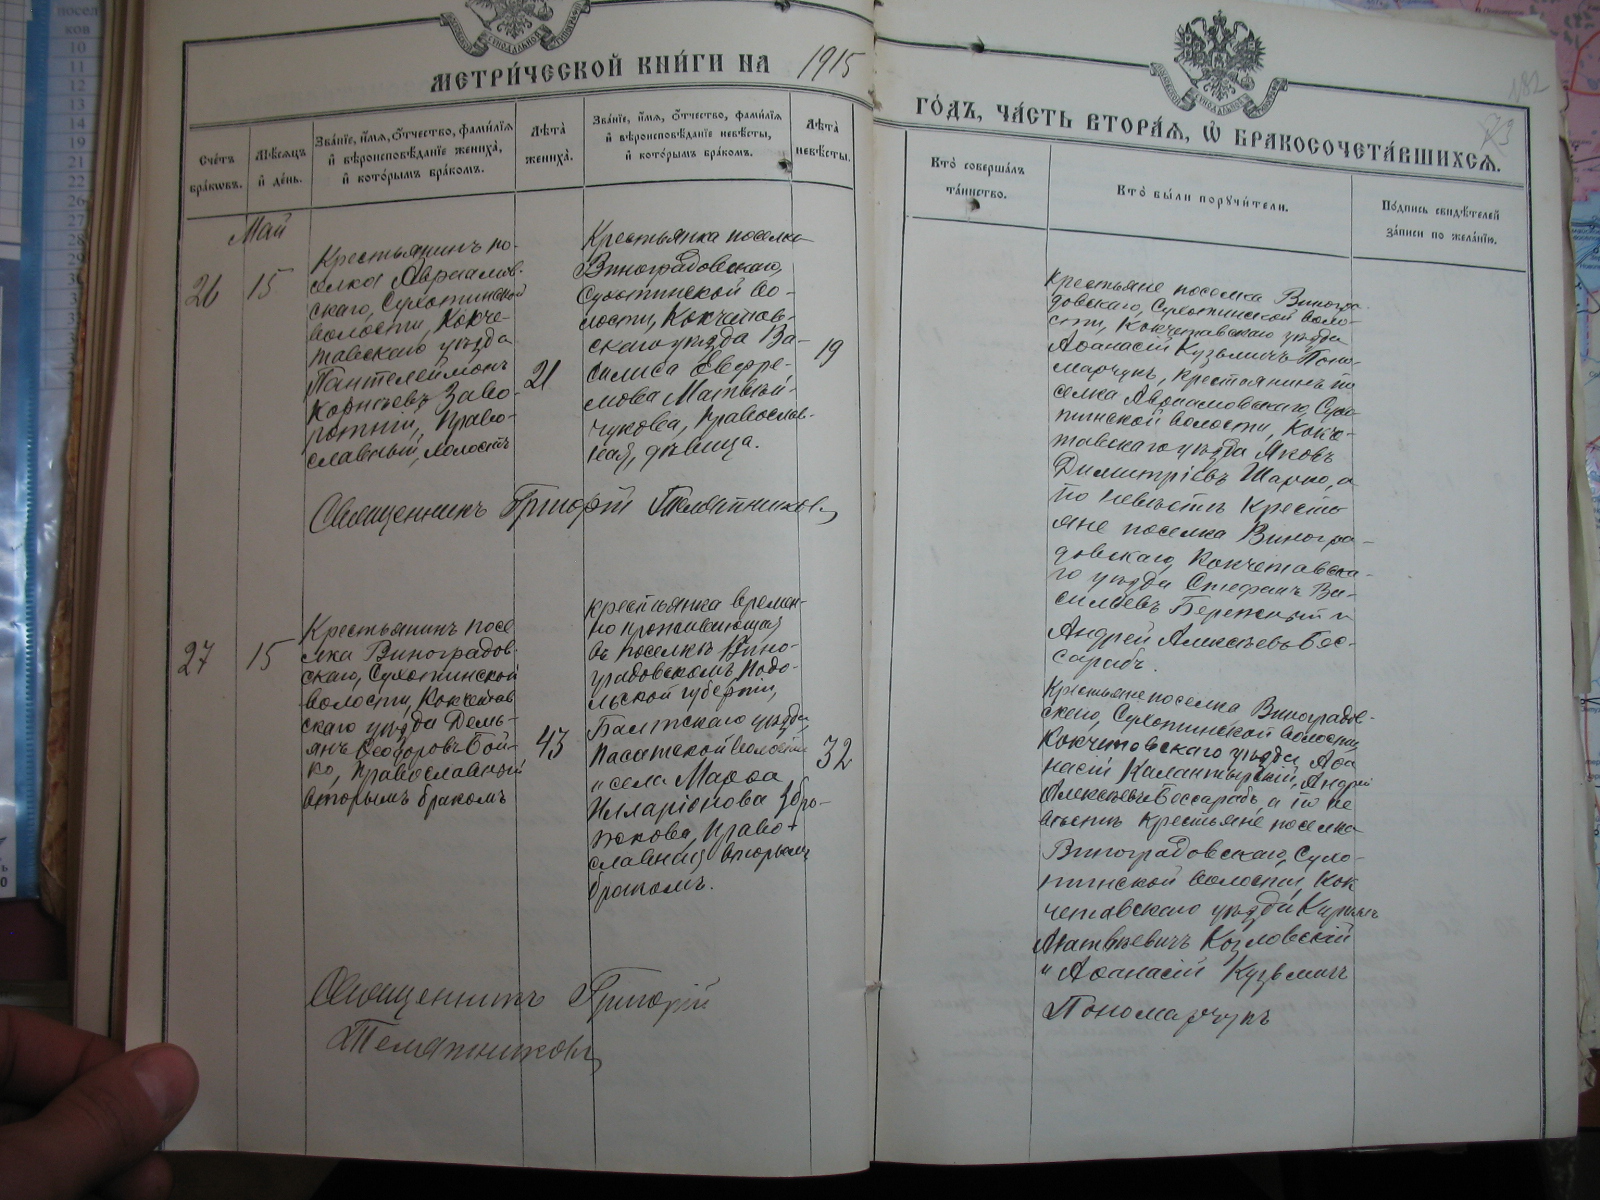 МЕТРИ́ЧЕСКОЙ КНИ́ГИ НА 1915
ГО́ДЪ, ЧА́СТЬ ВТОРА́Я, Ѡ БРАКОСОЧЕТА́ВШИХСЯ.
182
Сче́тъ бра́кѡвъ.
Мѣ́сяцъ и де́нь.
Зва́нїе, и́мя, о́тчество, фами́лїя
и вѣроисповѣ́данїе жениха̀,
и кото́рымъ бра́комъ.
Лѣ́та
жениха̀.
Зва́нїе, и́мя, о́тчество, фами́лїя
и вѣроисповѣ́данїе невѣ́сты,
и кото́рымъ бра́комъ.
Лѣ́та
невѣ́сты.
Кто̀ соверша́лъ
та́инство.
Кто̀ бы́ли поручи́тели.
По́дпись свидѣ́телей
за́писи по жела́нїю.
Май
26
15
Крестьянинъ по-
селка Авраамов-
скаго, Сухотинской
волости, Кокче-
тавскаго уѣзда
Пантелеймонъ
Корнѣевъ Заво-
ротній, Право-
славный, холостъ
21
Крестьянка поселка
Виноградовскаго,
Сухотинской во-
лости, Кокчетав-
скаго уѣзда Ва-
силиса Евфре-
мова Матвѣй-
чукова, Православ-
ная, дѣвица.
19
Крестьяне поселка Виногра-
довскаго, Сухотинской воло-
сти, Кокчетавскаго уѣзда
Аѳанасій Кузьмичъ Поно-
марчукъ, крестьянинъ по
селка Авраамовскаго, Сухо-
тинской волости, Кокче-
тавскаго уѣзда Яковъ
Димитріевъ Шарко, а
по невѣстѣ Кресть
яне поселка Виногра-
довскаго, Кокчетавска-
го уѣзда Стефанъ Ва-
сильевъ Бережный и
Андрей Алексѣевъ Бес-
сарабъ.
Священникъ Григорій Телятниковъ
27
15
Крестьянинъ посе
лка Виноградов-
скаго, Сухотинской
волости, Кокчетав
скаго уѣзда Демь-
янъ Ѳеодоровъ Бой-
ко, Православный
вторымъ бракомъ
43
Крестьянка времен-
но проживающая
въ поселкѣ Вино-
градовскомъ, Подо-
льской губерніи,
Балтскаго уѣзда,
Пасатской волости
и села Марѳа
Илларіонова
Право-
славная, вторымъ
бракомъ.
32
Крестьяне поселка Виноградов-
скаго, Сухотинской волости,
Кокчетавскаго уѣзда Аѳа
насій Калантырскій, Андрей
Алексѣевъ Бессарабъ, а по не
вѣстѣ Крестьяне поселка
Виноградовскаго, Сухо-
тинской волости, Кок
четавскаго уѣзда
Матвѣевичъ Козловскій
и Аѳанасій Кузьмичъ
Пономарчукъ
Священникъ Григорій
Телятниковъ